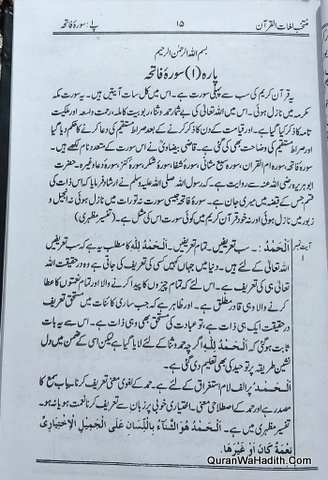 منتخب لغات القرآن ۱۵ پ: سورۂ فاتحہ
بسم اللہ الرحمن الرحیم
پارہ (۱) سورۂ فاتحہ
یہ قرآن کریم کی سب سے پہلی سورت ہے۔ اس میں کل سات آیتیں ہیں۔ یہ سورت مکہ
مکرمہ میں نازل ہوئی۔ اس میں اللہ تعالیٰ کی بے شمار حمد وثنا، ربوبیت کاملہ، رحمت واسعہ اور ملکیت
تامہ کا ذکر کیا گیا ہے۔ اور قیامت کے دن کا ذکر کرنے کے بعد صراط مستقیم کی دعا کرنے کا حکم دیا گیا
اور صراط مستقیم کی وضاحت بھی کی گئی ہے۔ قاضی بیضاوی نے اس سورت کے متعدد نام لکھے ہیں۔
سورۂ فاتحہ، سورۂ ام القرآن، سورۂ سبع مثانی، سورۂ شفا، سورۂ شکر، سورۂ کنز، سورۂ دعا وغیرہ۔ حضرت
ابو ہریرہ رضی اللہ عنہ سے روایت ہے۔ کہ رسول اللہ صلی اللہ علیہ وسلم نے ارشاد فرمایا کہ اس ذات کی
قسم جس کے قبضہ میں میری جان ہے۔ سورۂ فاتحہ جیسی سورت نہ تورات میں نازل ہوئی نہ انجیل و
زبور میں نازل ہوئی اور نہ خود قرآن کریم میں کوئی سورت اس کی مثل ہے۔ (تفسیر مظہری)
آیت نمبر اَلْحَمْدُ:۔ سب تعریفیں۔ تمام تعریفیں۔ اَلْحَمْدُ لِلّٰہِ کا مطلب یہ ہے کہ سب تعریفیں
۱ اللہ تعالیٰ کے لئے ہیں۔ دنیا میں جہاں کہیں کسی کی تعریف کی جاتی ہے وہ درحقیقت اللہ
تعالیٰ ہی کی تعریف ہے۔ اس لئے کہ تمام چیزوں کا پیدا کرنے والا اور تمام نعمتوں کا عطا
کرنے والا وہی قادر مطلق ہے۔ اور ظاہر ہے کہ جب ساری کائنات میں مستحق تعریف
درحقیقت ایک ہی ذات ہے، تو عبادت کی مستحق بھی وہی ذات ہے۔ اس سے یہ بات
ثابت ہوگئی کہ اَلْحَمْدُ لِلّٰہِ اگرچہ حمد وثنا کے لئے لایا گیا ہے لیکن اسی کے ضمن میں دل
نشیں طریقہ پر توحید کی بھی تعلیم دی گئی ہے۔
اَلْحَمْدُ پر الف لام استغراق کے لئے ہے۔ حمد کے لغوی معنی تعریف کرنا۔ باب سمع کا
مصدر ہے اور حمد کے اصطلاحی معنی۔ اختیاری خوبی پر زبان سے تعریف کرنا نعمت ہو یا نہ ہو۔
تفسیر مظہری میں ہے۔ اَلْحَمْدُ هُوَ الثَّنَاءُ بِاللِّسَانِ عَلَى الْجَمِيْلِ الْاِخْتِيَارِيِّ
نِعْمَةً كَانَ اَوْ غَيْرَهَا.
QuranWaHadith.Com